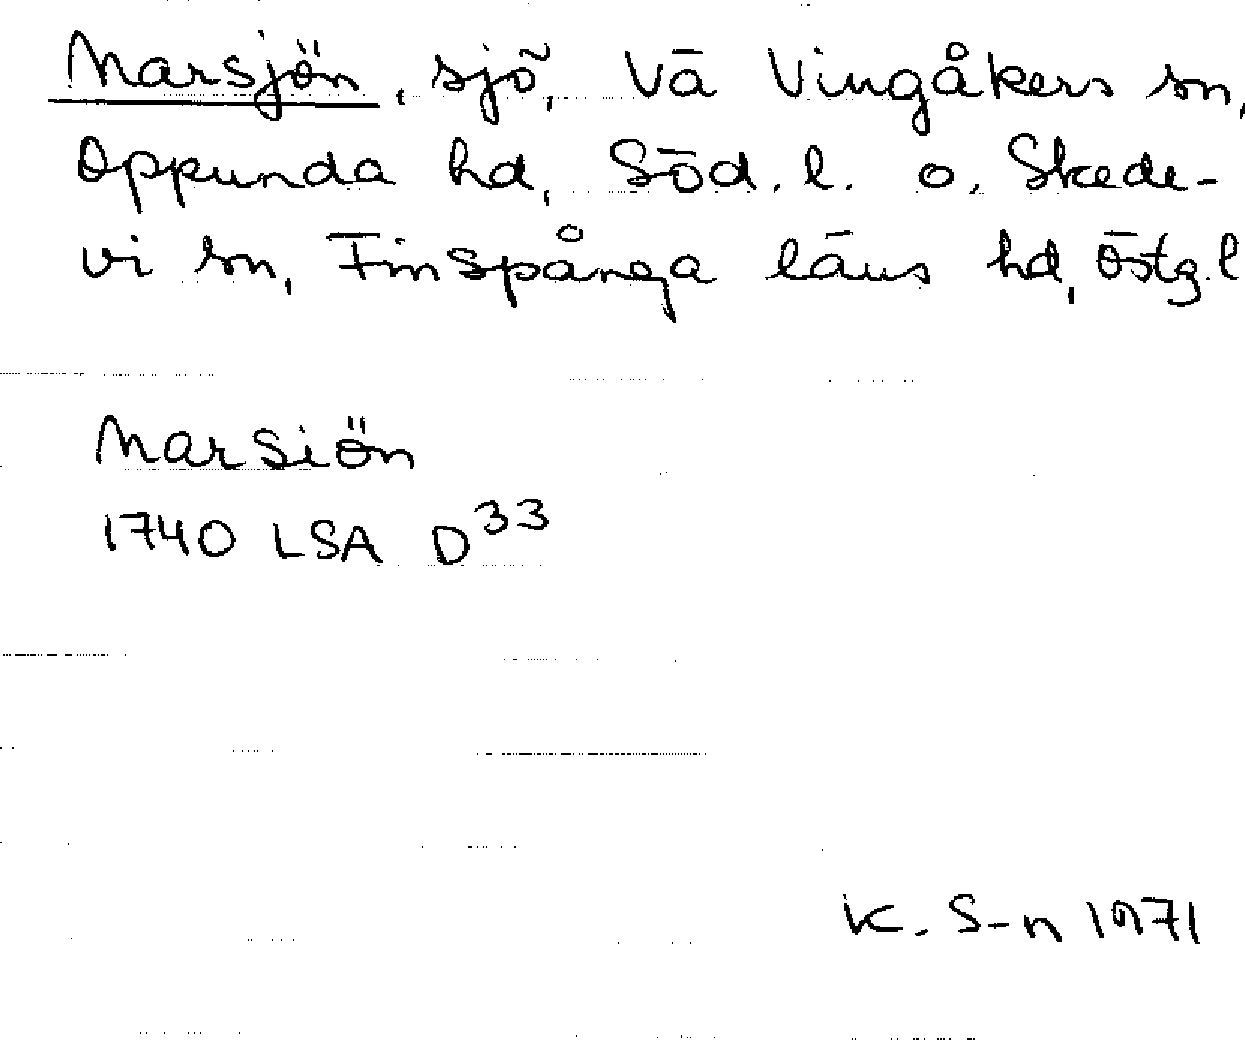 Marsjön, sjö, Vä Vingåkers sn,
Oppunda hd, Söd. l. o. Skede-
vi sn, Finspånga läns hd, Östg. l
Marsiön
1740 LSA D33
K. S-n 1971